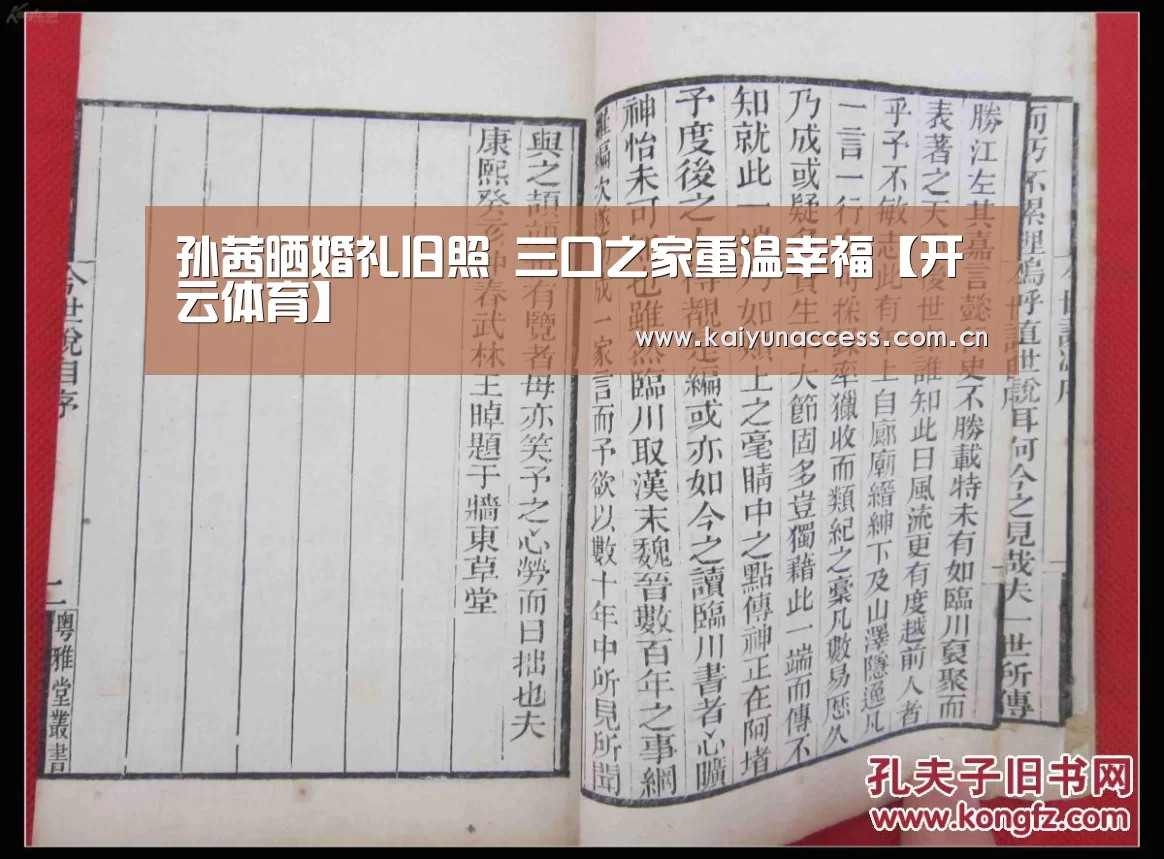 孙茜晒婚礼旧照 三口之家重温幸福【开
云体育】
www.kaiyunaccess.com.cn
而巧不累理嗚呼直世說耳何今之見哉夫一世所傳
勝江左其嘉言懿行史不勝載特未有如臨川裒聚而
表著之天後世誰知此日風流更有度越前人者
乎予不敏志此有年上自廊廟縉紳下及山澤隱逸凡
一言一行有可採率獵收而類紀之稾凡數易歷久
乃成或疑名賢生平大節固多豈獨藉此一端而傳不
知就此一端乃如頰上之毫睛中之點傳神正在阿堵
予度後之人得覩是編或亦如今之讀臨川書者心曠
神怡未可知也雖然臨川取漢末魏晉數百年之事網
羅編次遂成一家言而予欲以數十年中所見所聞
與之頡頏有覽者毋亦笑予之心勞而日拙也夫
康熙癸亥仲春武林王晫題于牆東草堂
今世說自序
二
粵雅堂叢書
孔夫子旧书网
www.kongfz.com